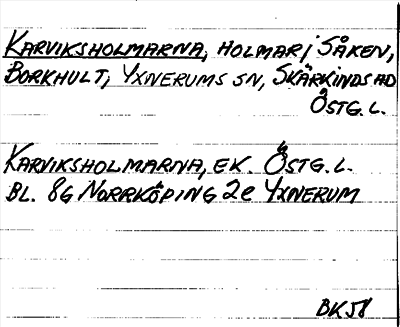 KARVIKSHOLMARNA, HOLMAR i SÅKEN,
BORKHULT, YXNERUMS SN, SKÄRKINDS AD
ÖSTG. L.
KARVIKSHOLMARNA, EK. ÖSTG. L.
BL. 8G NORRKÖPING 2e YXNERUM
BK 58